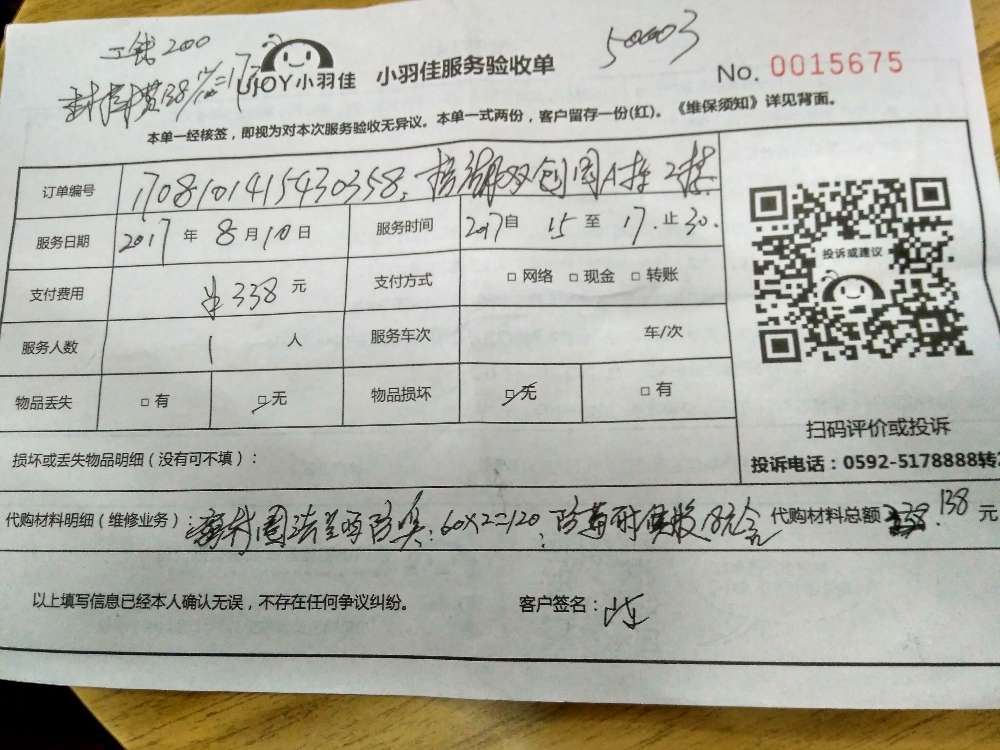 工钱200
50003
UJOY小羽佳 小羽佳服务验收单 No. 0015675
本单一经核签，即视为对本次服务验收无异议。本单一式两份，客户留存一份(红)。《维保须知》详见背面。
订单编号 1708101415430358.
服务日期 2017 年 8 月 10 日 服务时间 2017 自 15 至 17.止30.
支付费用 338 元 支付方式 □ 网络 □ 现金 □ 转账
服务人数 1 人 服务车次 车/次
物品丢失 □ 有 □ 无 物品损坏 □ 无 □ 有
投诉或建议
扫码评价或投诉
投诉电话：0592-5178888转
损坏或丢失物品明细（没有可不填）：
代购材料明细（维修业务）： 60X2=120 代购材料总额 138 元
以上填写信息已经本人确认无误，不存在任何争议纠纷。 客户签名：